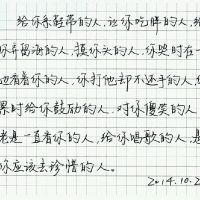 给你系鞋带的人,让你吃胖的人,给
你开罐头的人,摸你头的人,你哭时在一
边看着你的人,你打他却不还手的人,你
累时给你鼓励的人,对你傻笑的人
老是一直看你的人,给你唱歌的人,是
你应该去珍惜的人。
2014.10.2